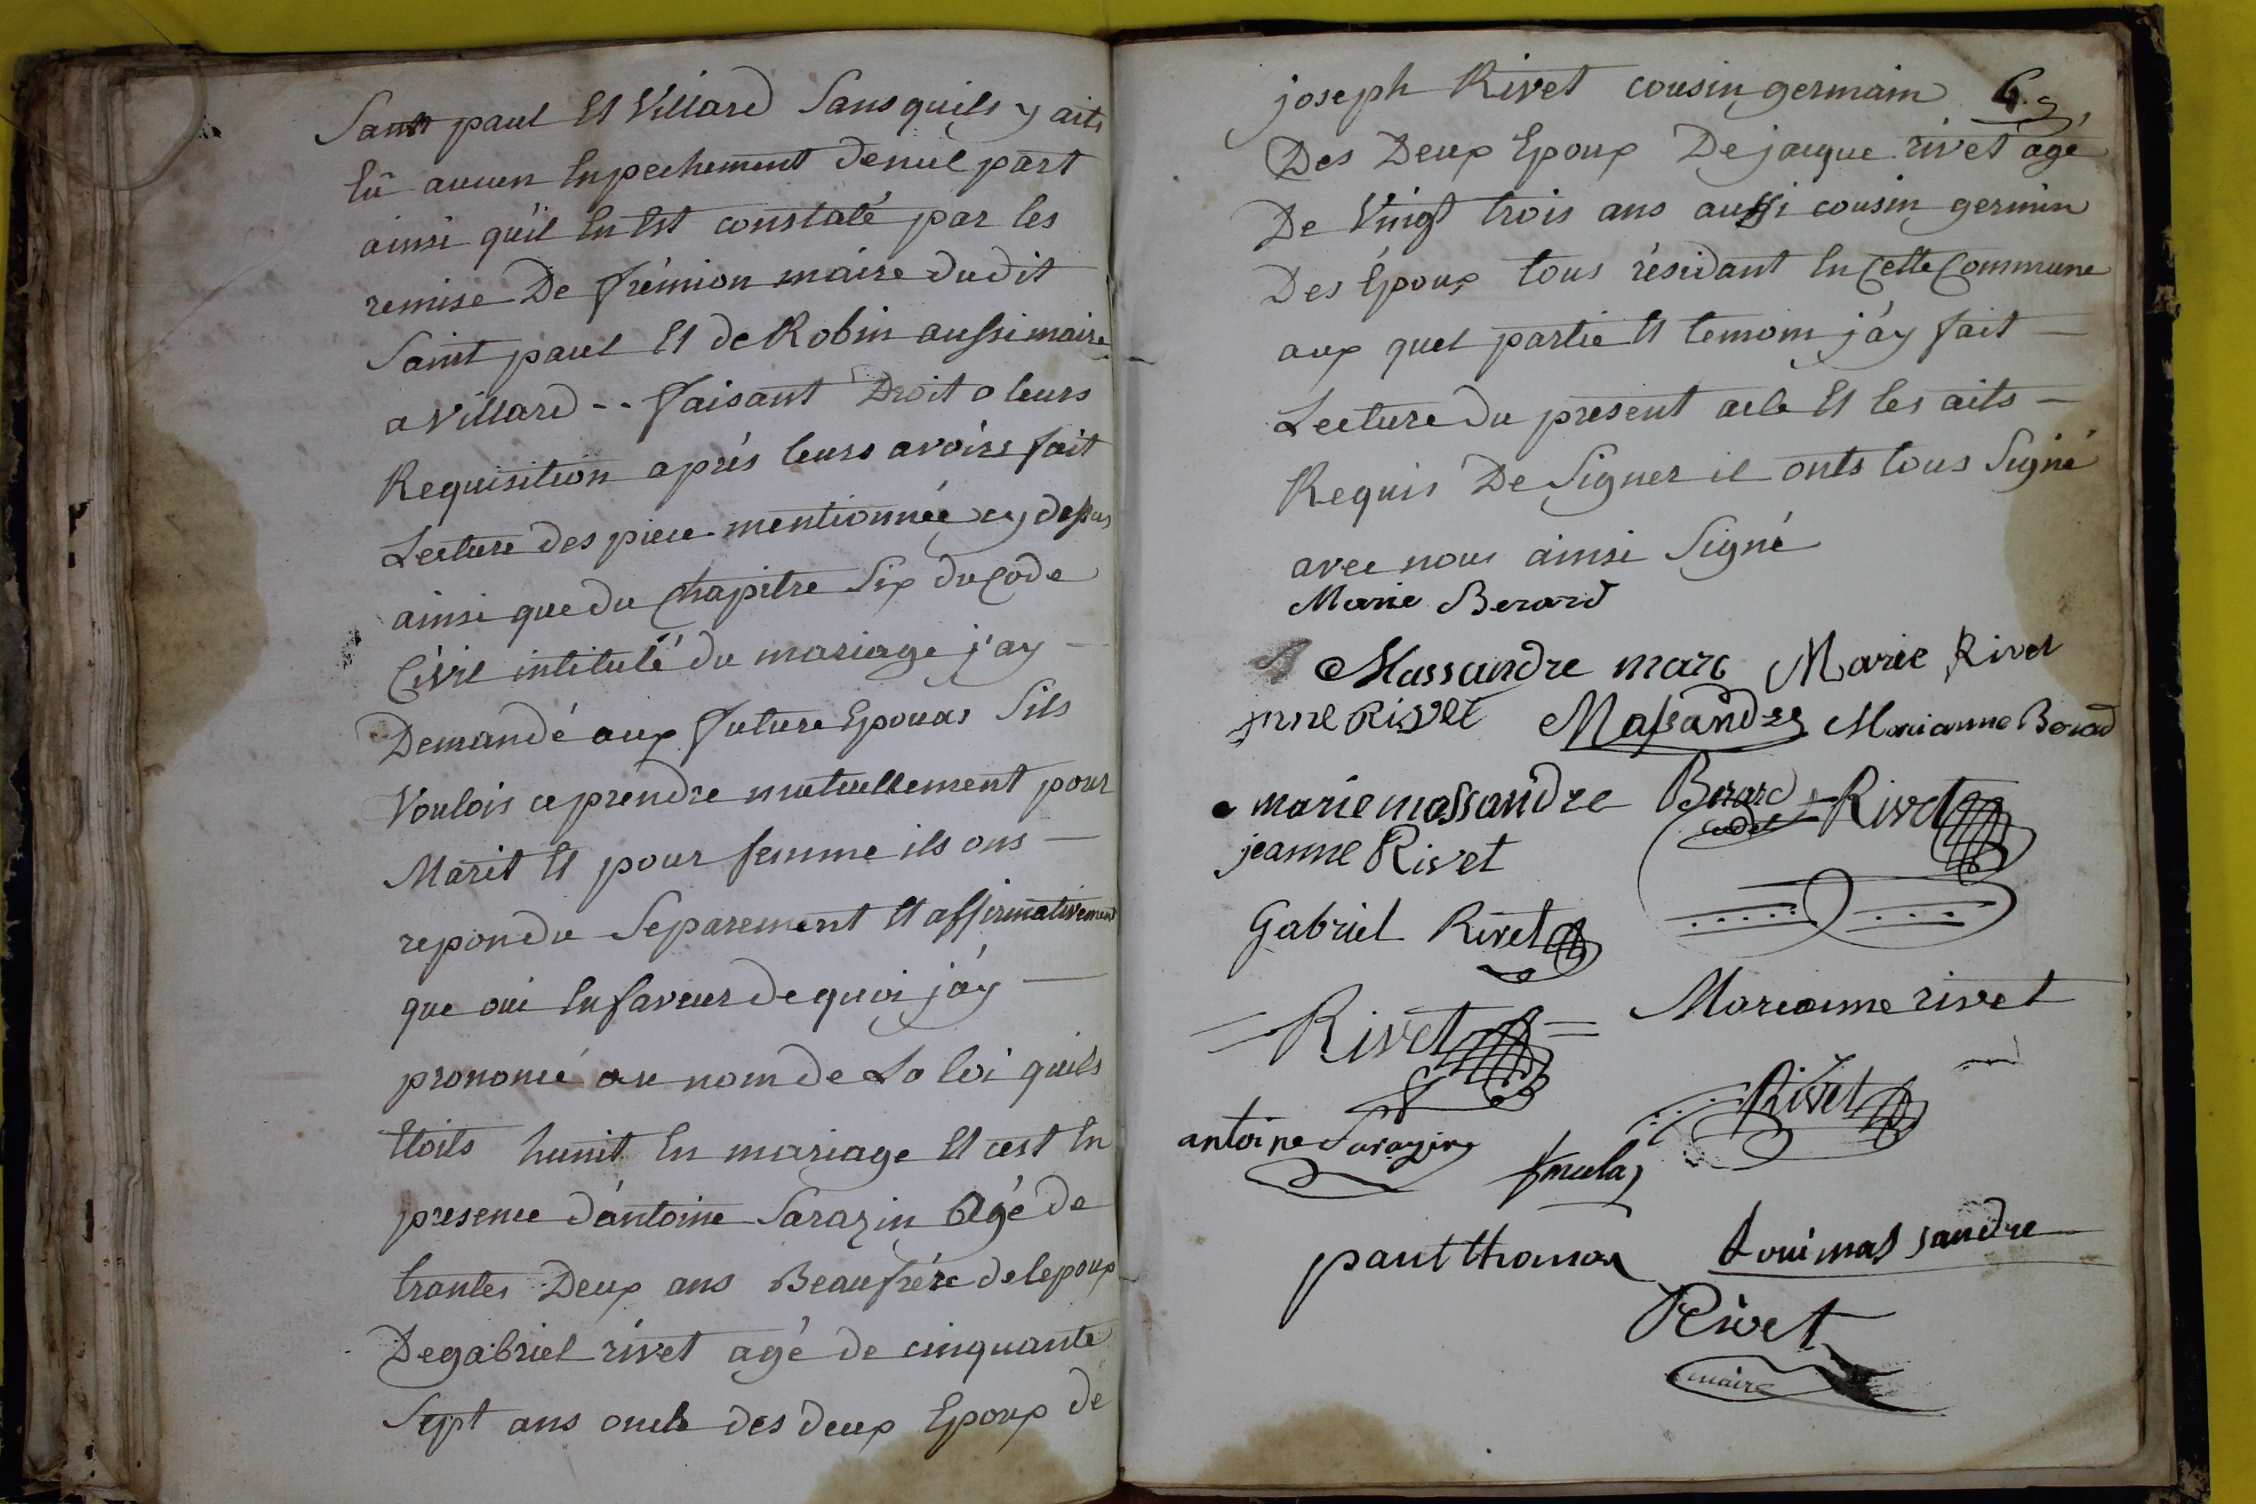 Saint paul Et Villard Sans quils y aits
Eû aucun Enpechement de nul part
ainsi qu'il En Est constaté par les
remise De frémion maire dudit
Saint paul Et de Robin aussi maire
a Villard -- faisant Droit a leurs
Requisition aprés leurs avoirs fait
Lecture des piece mentionnée cy dessus
ainsi que du Chapitre Six du Code
Civil intitulé du mariage j'ay —
Demandé aux future Epouas Sils
Voulois ce prendre mutuellement pour
Marit Et pour femme ils ons —
repondu Separement Et affirmativement
que oui En faveur de quoi j'ay —
prononcé au nom de La loi quils
Etoits hunit En mariage Et cest En
presence d'antoine Sarazin Agé de
trantes Deux ans Beaufrére de lepoux
De gabriel rivet agé de cinquante
Sept ans oncle des deux Epoux de
joseph Rivet cousin germain 6
Des Deux Epoux De jacque rivet agé
De Vingt trois ans aussi cousin germin
Des Epoux tous résidant En Cette Commune
aux quel partie Et temoin j'ay fait —
Lecture du present acte Et les aits —
Requis De Signer il onts tous Signé
avec nous ainsi Signé
Marie Berard
Massandre marc Marie Rivet
Rivet Massandre Marianne Berard
marie massandre Berard cadet Rivet
jeanne Rivet
Gabriel Rivet
Rivet Marianne rivet
Rivet
antoine Sarazin
paul thomas Loui massandre
Rivet
maire